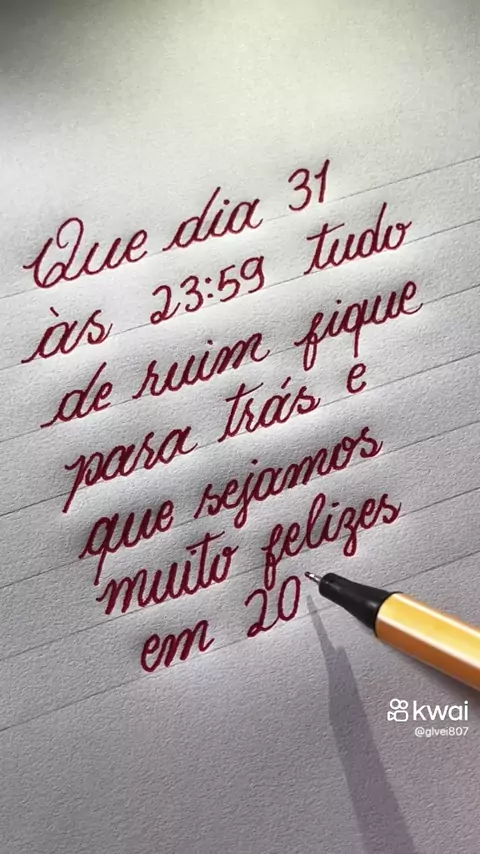 Que dia 31
às 23:59 tudo
de ruim fique
para trás e
que sejamos
muito felizes
em 20
kwai
@glvei807